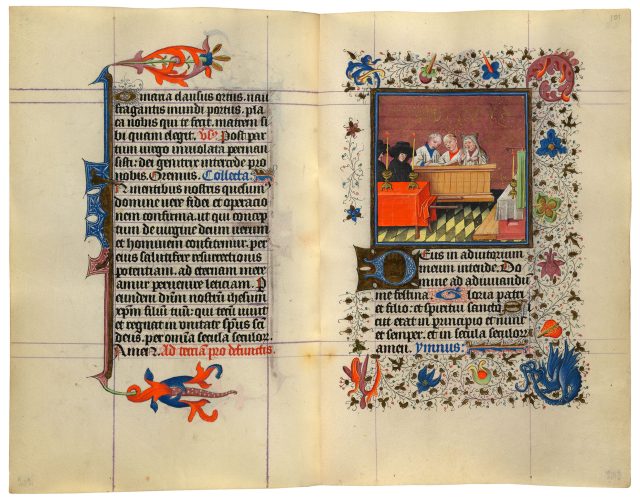 O maria clausus ortus. nau
fragantis mundi portus. pla
ca nobis qui te fecit. matrem si
bi quam elegit. Vs. Post par
tum virgo inviolata perman
sisti: dei genitrix intercede pro
nobis. Oremus. Collecta:
Mentibus nostris quesum
domine vere fidei et operacio
nem confirma. ut qui concep
tum de virgine deum verum
et hominem confitemur. per
eius salutifere resurectionis
potentiam. ad eternam mere
amur pervenire leticiam. P
er eundem dnm nostru ihesum
xpm filiu tuu: qui tecu vivit
et regnat in unitate spus sci
deus. per omnia secula seculor.
Amen. Ad tercia pro defunctis.
101
Deus in adiutorium
meum intende. Do
mine ad adiuvandu
me festina. Gloria patri
et filio: et spiritui sancto. S
icut erat in principio et nunc
et semper. et in secula seculor
amen. ymnus.